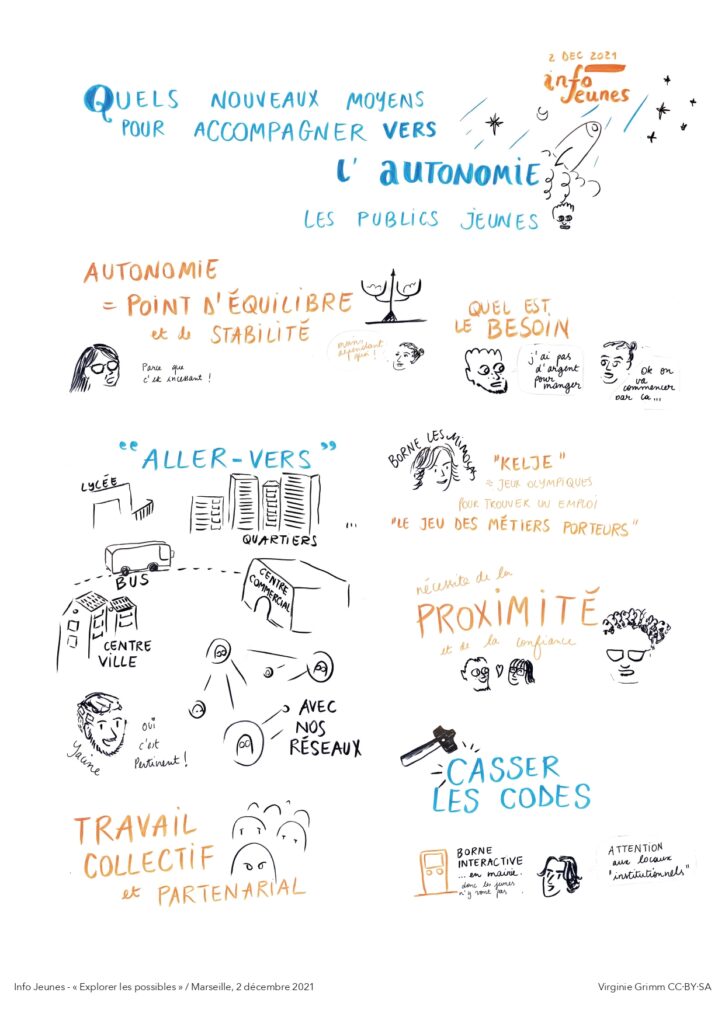 2 DEC 2021
info
Jeunes
QUELS NOUVEAUX MOYENS
POUR ACCOMPAGNER VERS
L' AUTONOMIE
LES PUBLICS JEUNES
AUTONOMIE
= POINT D'ÉQUILIBRE
et de STABILITÉ
Parce que
c'est incessant !
QUEL EST
LE BESOIN
j'ai pas
d'argent
pour
manger
Ok on
va
commencer
par ça...
"ALLER-VERS"
LYCÉE
QUARTIERS
...
BUS
CENTRE
COMMERCIAL
CENTRE
VILLE
AVEC
NOS
RÉSEAUX
Yacine
oui
c'est
Pertinent !
TRAVAIL
COLLECTIF
et PARTENARIAL
BORNE LES MIMOSAS
"KELJE"
= JEUX OLYMPIQUES
POUR TROUVER UN EMPLOI
"LE JEU DES MÉTIERS PORTEURS"
nécessité de la
PROXIMITÉ
et de la confiance
CASSER
LES CODES
BORNE
INTERACTIVE
... en mairie.
donc les jeunes
n'y vont pas
ATTENTION
aux locaux
"institutionnels"
Info Jeunes - « Explorer les possibles » / Marseille, 2 décembre 2021
Virginie Grimm CC-BY-SA